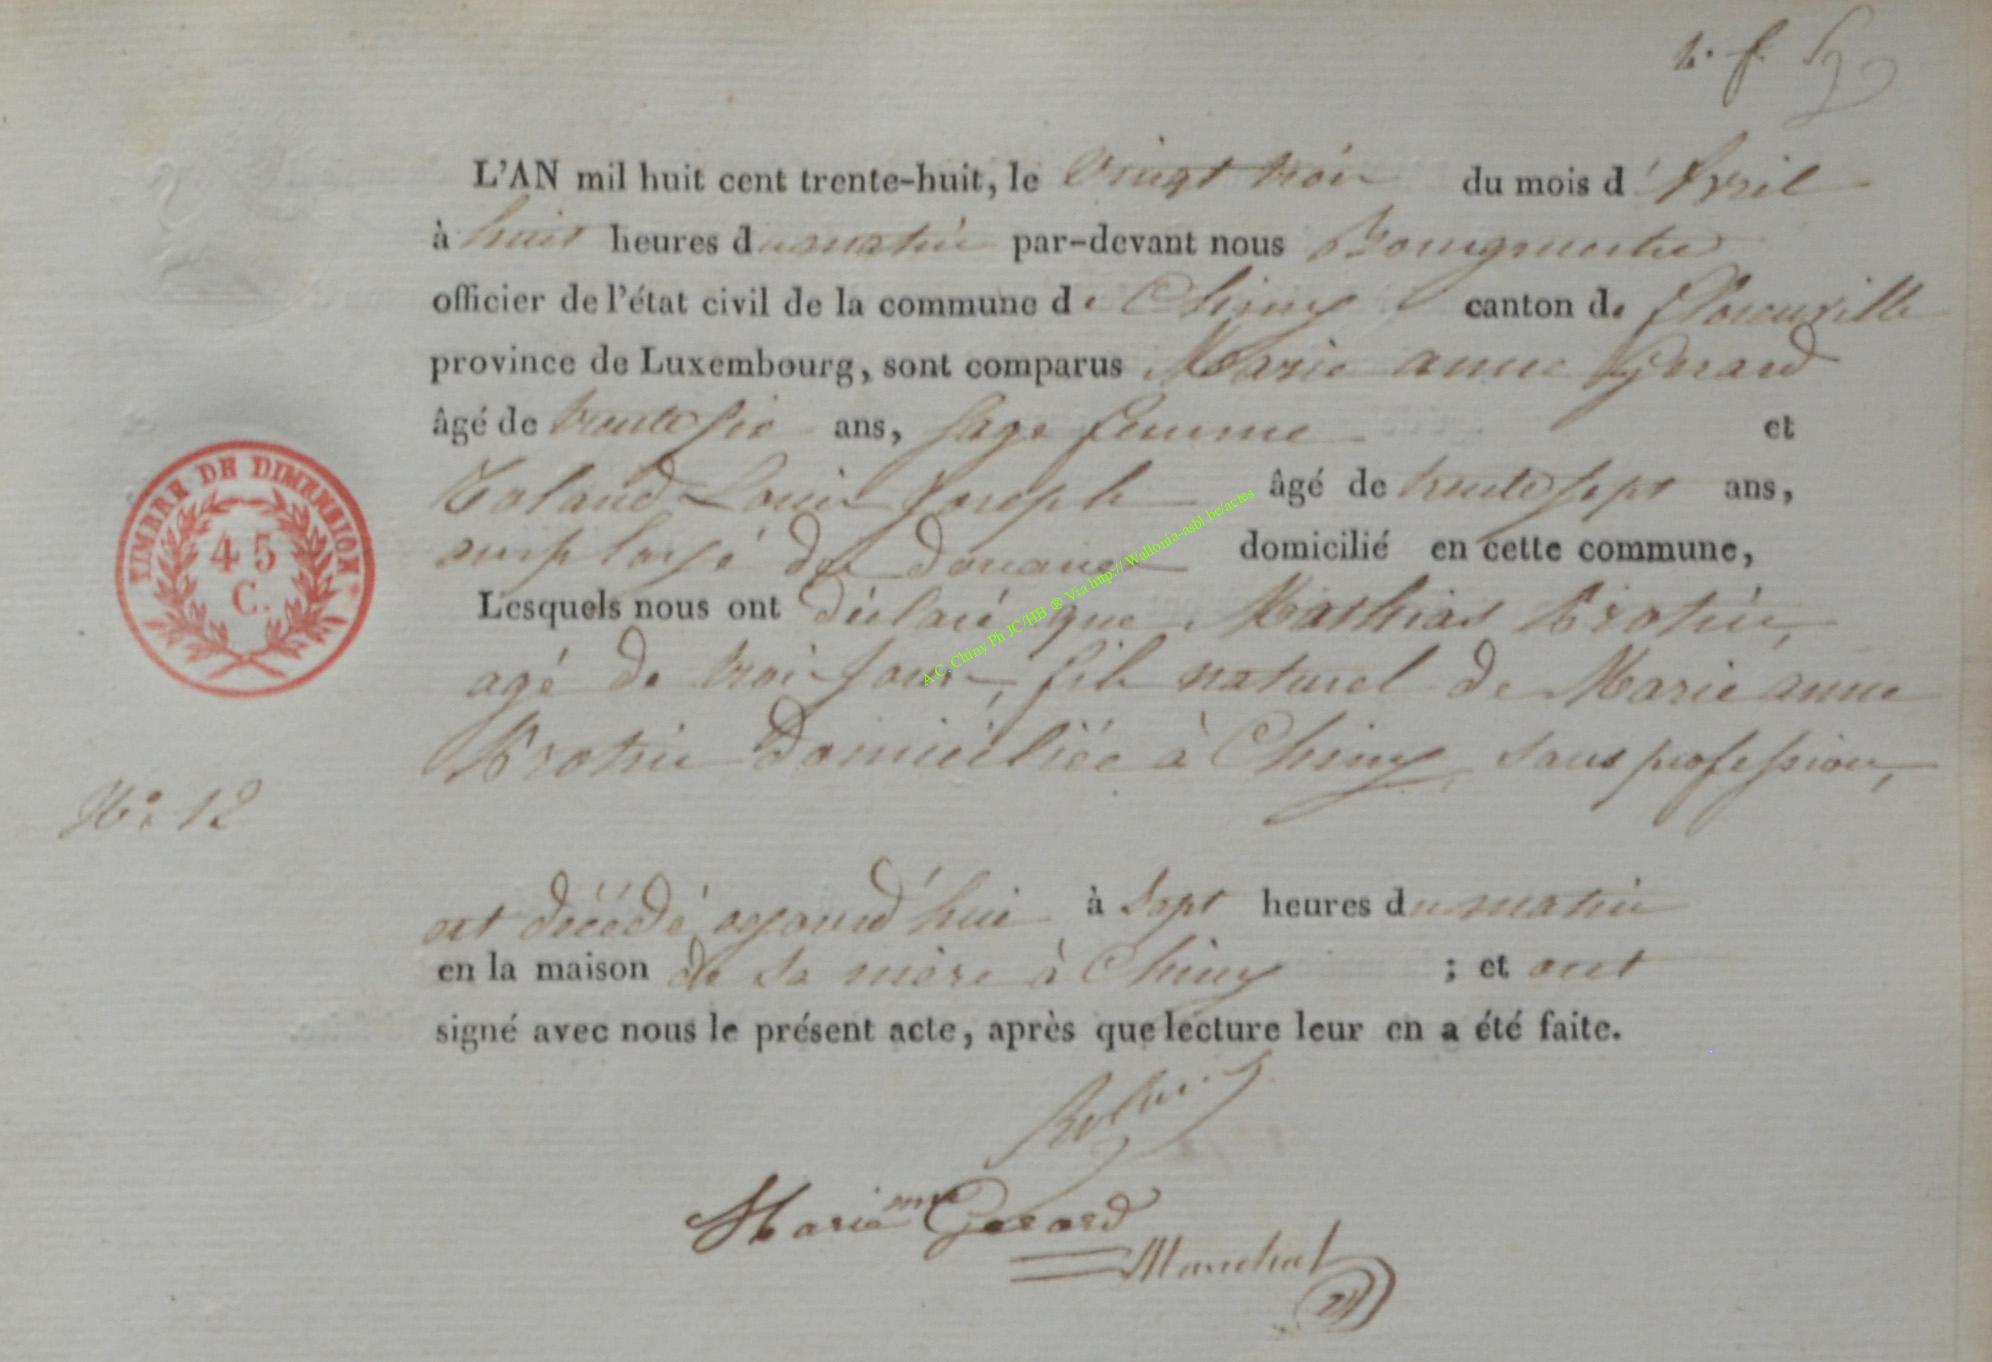 L'AN mil huit cent trente-huit, le vingt trois du mois d'Avril
à huit heures du matin par-devant nous Bourgmestre
officier de l'état civil de la commune de Chiny canton de Florenville
province de Luxembourg, sont comparus Marie anne Gerard
âgé de trente six ans, sage femme et
Louis Joseph âgé de trente sept ans,
employé des douanes domicilié en cette commune,
Lesquels nous ont déclaré que Mathias
agé de trois jours, fils naturel de Marie anne
domiciliée à Chiny, sans profession,
est décédé aujourd'hui à sept heures du matin
en la maison de sa mère à Chiny ; et ont
signé avec nous le présent acte, après que lecture leur en a été faite.
Marie anne Gerard
TIMBRE DE DIMENSION
45
C.
No. 12
A.C. Chiny Ph JC/HB @ Via http://Wallonia-asbl.be/actes